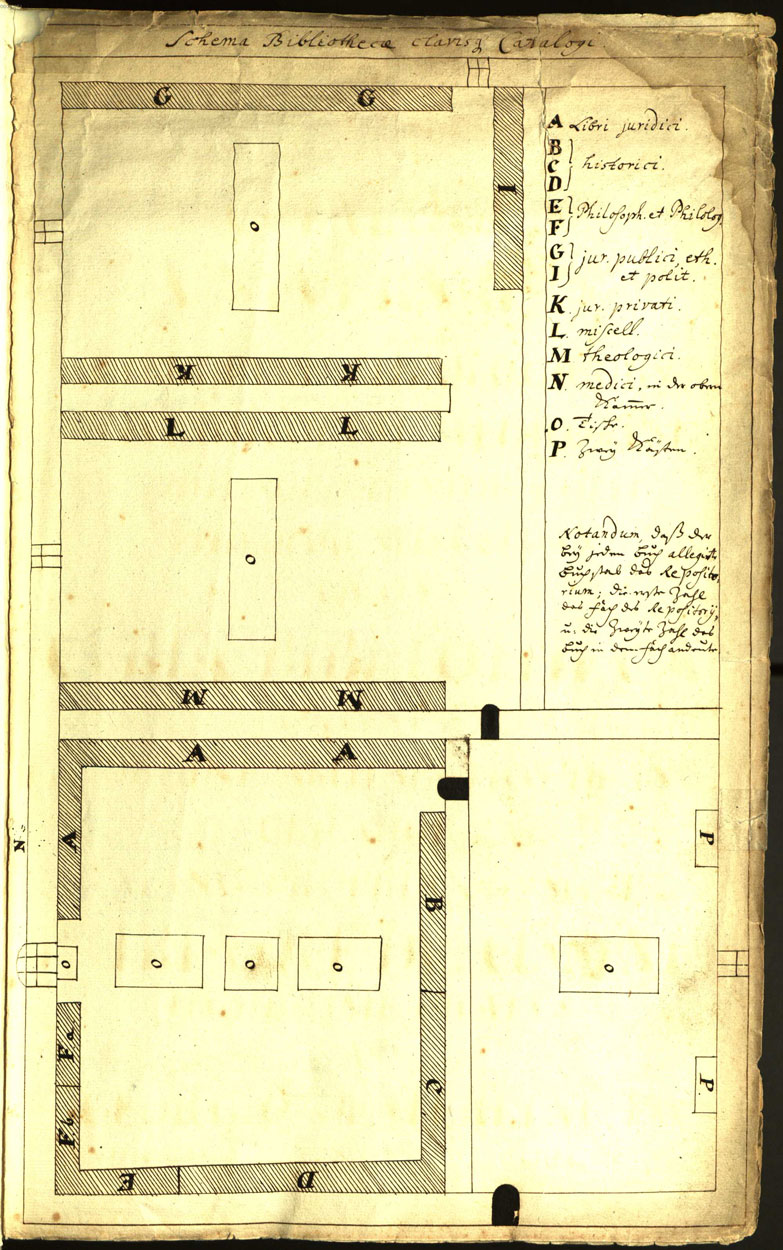 Schema Bibliothecæ clavisq Catalogi.
G G
I
A Libri juridici.
B
C historici.
D
E Philosoph. et Philolog
F
G jur. publici, eth.
I et polit.
K. jur. privati.
L. miscell.
M theologici.
N. medici, in der obern
Kam̄er.
O. Tische.
P. Zwey Kästen.
o
K K
L L
o
Notandum, daß der
bey jedem buch allegirte
buchstab das Reposito,
rium; die erste Zahl
das fach des Repositorij,
u. die Zweyte Zahl das
buch in dem fach andeute
M M
A A
A
N
P
B
o o o o
o
Fa
Fb
C
P.
E D